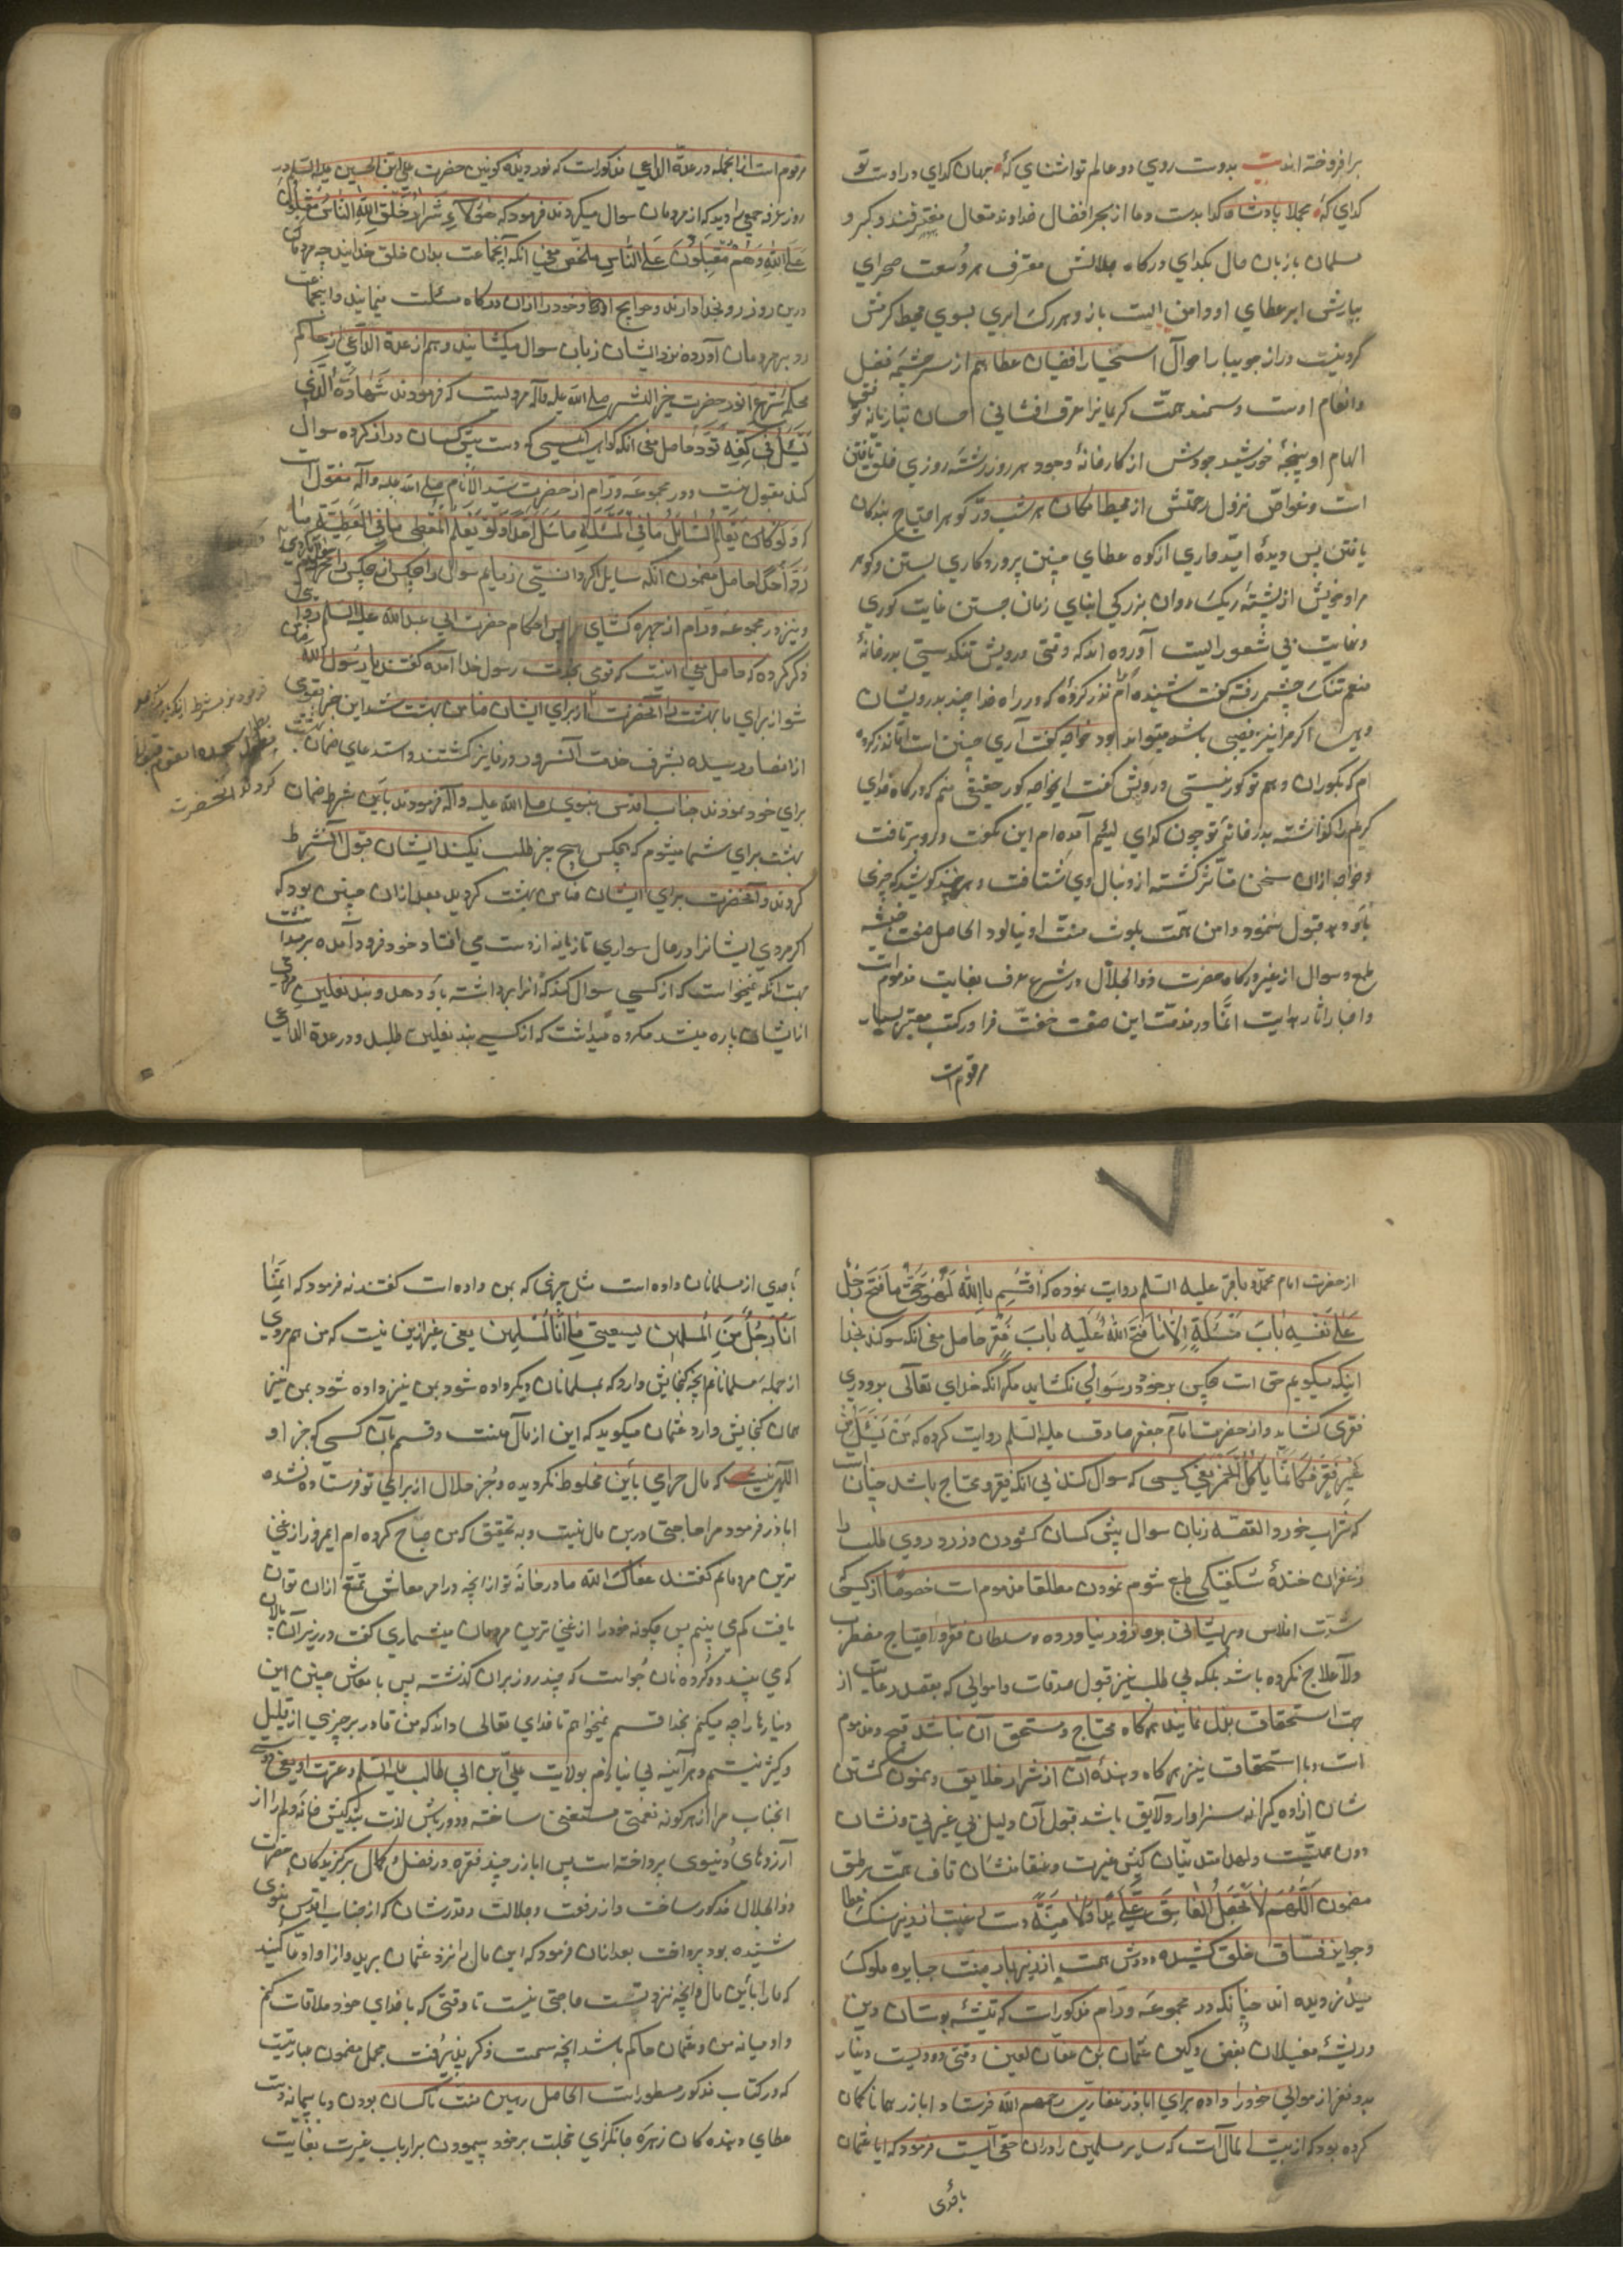 برافروخته اند بیت بدوت روی دو عالم تو آشنای که جهان کدای در اوت تو
کدای که مجملا پادشاه و کدا بدست و ما از بحر افضال خداوند متعال مغترفند و کبر و
مسلمان بازبان حال بکدای درکاه جلالش معترف هر وسعت صحرای
ببارش ابر عطای او دامن البت باز و هر رک ابری بسوی محیط کرمش
و انعام اوست و سمند همت کریمانرا عرق افشانی احسان بتازیانه
الهام او پنجهٔ خورشید جودش از کارخانهٔ وجود هر روز رشتهٔ روزی خلق یافتن
است و غواص نزول رحمتش از محیط امکان هر شب در کوهر احتیاج بندکان
یافتن پس دیدهٔ امیدواری از کوه عطای چنین پروردکاری بستن و کوهر
مراد خویش از پشتهٔ ریک روان بزرکی ابنای زمان جستن غایت کوری
و نهایت بی شعوریست آورده اند که وقتی درویش تنکدستی بدر خانهٔ
منعم تنک چشمی رفته کفت شنیده ام نذر کردهٔ که در راه خدا چیز بدرویشان
دهی اکر مرا نیز نصیبی باشد میتواند بود خواجه کفت آری چنین است اما نذر کرده
ام که بکوران دهم تو کور نیستی درویش کفت ایخواجه کور حقیقی منم که درکاه خدای
کریم را کذاشته بدر خانهٔ تو چون کدای لئیم آمده ام این بکفت و رو برتافت
و خواجه ازان سخن متاثر کشته از دنبال وی شتافت و هر چند کوشید که چیزی
باو دهد قبول ننمود و دامن همت بلوث منت او نیالود الحاصل صفت خبیثه
طمع و سوال از غیر درکاه حضرت ذوالجلال در شرع و عرف بغایت مذموم است
و اخبار و آثار هدایت انما در مذمت این صفت خفت فزا در کتب معتبر بسیار
مرقوم است
مرقوم است ازانجمله در عدة الداعی مذکور است که نور دیدهٔ کونین حضرت علی ابن الحسین علیه السلام در
روز عرفه جمعی را دید که از مردمان سوال میکردند فرمود که هؤلاء شرار خلق الله الناس مقبلون
علی الله و هم مقبلون علی الناس ملخص معنی آنکه آنجماعت بدان خلق خدایند چه مردمان
درین روز رو بخدا دارند و حوایج خود را ازان درکاه مسئلت مینمایند و اینجماعت
رو بمردمان آورده نزد ایشان زبان سوال میکشایند و هم از عدة الداعی از حاکم
محکمه شرع انور حضرت خیر البشر صلی الله علیه و آله مرویست که فرمودند شهادة الذی
یسئل فی کفه ترد حاصل معنی آنکه کواهی کسی که دست پیش کسان دراز کرده سوال
کند مقبول نیست و در مجموعه ورام از حضرت سید الانام صلی الله علیه و آله منقول است
که لو کان یعلم السائل ما فی المسئلة ما سئل احد احدا و لو یعلم المعطی ما فی العطیة ما
رد احد احدا حاصل مضمون آنکه سایل اکر دانستی زیانم سوال را هیچکس از هیچکس
و نیز در مجموعه ورام از چهره کشای احکام حضرت ابی عبد الله علیه السلم
ذکر کرده که حاصل معنی اینست که قومی بخدمت رسول خدا آمده کفتند یا رسول الله
شو از برای ما بهشت را آنحضرت از برای ایشان ضامن بهشت شد این خبر بقومی
از انصار رسیده بشرف خدمت آنسرور فایز کشتند و استدعای ضمان بهشت
برای خود نمودند جناب اقدس نبوی صلی الله علیه و آله فرمودند باین شرط ضمان
بهشت برای شما میشوم که از هیچکس هیچ چیز طلب نکنند ایشان قبول آن شرط
کردند و آنحضرت برای ایشان ضامن بهشت کردید بعد ازان چنین بود که
اکر مردی ایشانرا در حال سواری تازیانه از دست می افتاد خود فرود آمده بر میداشت
بجهت آنکه نمیخواست که از کسی سوال کند که آنرا برداشته باو دهد و بند نعلین مردی
از ایشان پاره میشد مکروه میداشت که از کسی بند نعلین طلبد و در عدة الداعی
از حضرت امام محمد باقر علیه السلم روایت نموده که اقسم بالله لهو حق ما فتح رجل
علی نفسه باب مسئلة الا فتح الله علیه باب فقر حاصل معنی آنکه سوکند بخدا
اینکه میکویم حق است هیچکس بر خود در سوالی نکشاید مکر آنکه خدای تعالی برو دری
فقری کشاید و از حضرت امام جعفر صادق علیه السلم روایت کرده که من یسئل من
غیر فقر فکانما یاکل الخمر یعنی کسی که سوال کند بی آنکه فقیر و محتاج باشد چنانست
که شراب خورد القصه زبان سوال پیش کسان کشودن و زرد روی طلب را
زعفران خندهٔ شکفتکی طبع شوم نمودن مطلقا مذموم است خصوصا از کسی
شدت افلاس و پریشانی برو زور نیاورده و سلطان فقر و احتیاج مضطرب
و لاعلاج نکرده باشد بلکه بی طلب نیز قبول صدقات و اموالی که بقصد رعایت از
جهت استحقاق بذل نمایند هرکاه محتاج و مستحق آن نباشد قبیح و مذموم
است و با استحقاق نیز هرکاه دهندهٔ آن از شرار خلایق و ممنون کشتن
شان آزاده کیرانه سزاوار و لایق باشد قبول آن دلیل بی غیرتی و نشان
دون همتیست و لهذا متدینان کیش غیرت و عنقا منشان قاف همت بر طبق
مضمون اللهم لا تجعل لفاسق علی یدا و لا منة دست رغبت
و جوایز فساق خلق کشیده و دوش همت از زیر بار منت جبابره ملوک
میدزدیده اند چنانکه در مجموعه ورام مذکور است که تیشه بوستان دین
و ریشهٔ مغیلان بغض و کین عثمان بن عفان لعین وقتی دو دویست دینار
بدو نفر از موالی خود داده برای اباذر غفاری رحمه الله فرستاد و اباذر همانا کمان
کرده بود که از بیت المال است که سایر مسلمین را دران حق است فرمود که ایا عثمان
باحدی
باحدی از مسلمانان داده است مثل چیزی که بمن داده است کفتند نه فرمود که انما
انا رجل من المسلمین یسعنی ما یسع المسلمین یعنی غیر ازین نیست که من هم مردی
از جمله مسلمانانم آنچه کنجایش دارد که بمسلمانان دیکر داده شود بمن نیز داده شود بمن نیز
همان کنجایش دارد عثمان میکوید که این از مال منست و قسم بآن کسی که جز او
الهی نیست که مال حرامی باین مخلوط نکردیده و جز حلال از برای تو فرستاده نشده
اباذر فرمود مرا حاجتی درین مال نیست و به تحقیق که من صباح کرده ام امروز از غنی
ترین مردمانم کفتند عفاک الله ما در خانه تو از آنچه در امر معاش تمتع ازان توان
یافت کم می بینم پس چکونه خود را از غنی ترین مردمان میشماری کفت در زیر آن پالان
که می بیند دو کرده نان جو است که چند روز بران کذشته پس با معاش چنین این
دینارها را چه میکنم بخدا قسم نمیخواهم تا خدای تعالی داند که من قادر بر چیزی از قلیل
و کثیر نیستم و هر آینه بی نیازم بولایت علی ابن ابی طالب علیه السلم و عترت او یعنی
انجناب مرا از هرکونه نعمتی مستغنی ساخته
آرزوهای دنیوی پرداخته است پس اباذر چند فقره در فضل و کمال برکزیدکان حضرت
ذوالجلال مذکور ساخت و از رفعت و جلالت و قدر شان که از جناب اقدس نبوی
شنیده بود پرداخت بعد ازان فرمود که این مال را نزد عثمان برید و از او
که ما را باین مال و آنچه نزد تست حاجتی نیست تا وقتی که با خدای خود ملاقات کنم
و او میانه من و عثمان حاکم باشد آنچه سمت ذکر پذیرفت مجمل مضمون عبارتیست
که در کتاب مذکور مسطور است الحاصل رهین منت ناکسان بودن و با پیمانه دست
عطای دهنده کان زهره جانکزای خجلت بر خود پیمودن بر ارباب غیرت بغایت